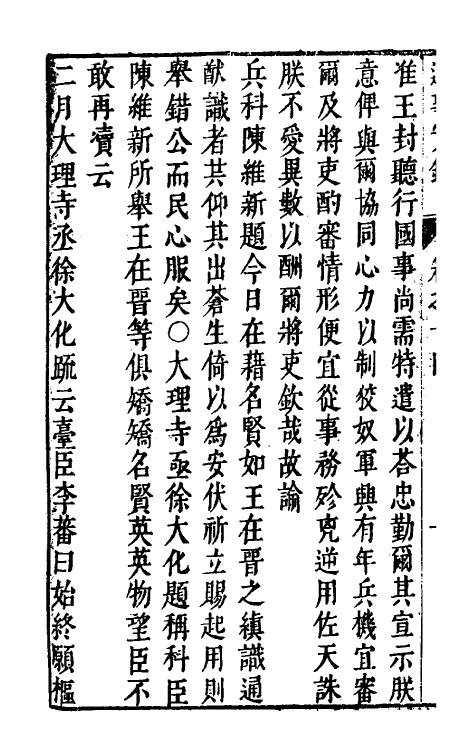 准王封聽行國事尚需特遣以荅忠勤爾其宣示朕
意俾與爾協同心力以制狡奴軍興有年兵機宜審
爾及將吏酌審情形便宜從事務殄兇逆用佐天誅
朕不愛異數以酬爾將吏欽哉故諭
兵科陳維新題今日在藉名賢如王在晋之縝識通
猷識者共仰其出蒼生倚以爲安伏祈立賜起用則
舉錯公而民心服矣○大理寺丞徐大化題稱科臣
陳維新所舉王在晋等俱矯矯名賢英英物望臣不
敢再瀆云
二月大理寺丞徐大化疏云臺臣李蕃曰始終願樞